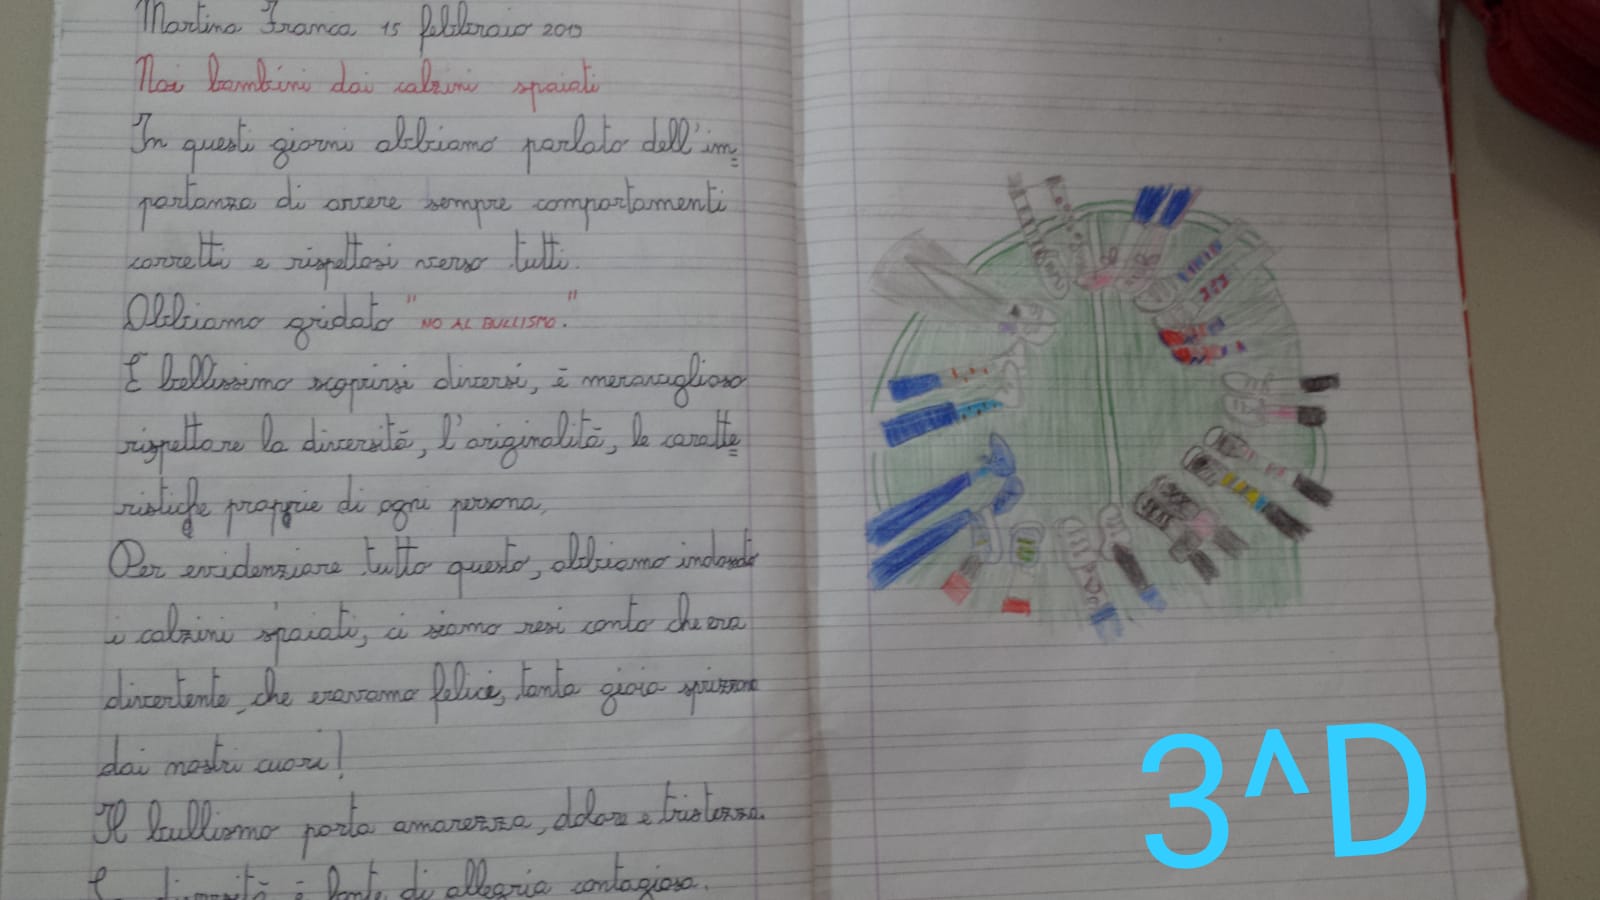 Martina Franca 15 febbraio 2019
Noi bambini dai calzini spaiati
In questi giorni abbiamo parlato dell'im=
portanza di avere sempre comportamenti
corretti e rispettosi verso tutti.
Abbiamo gridato "NO AL BULLISMO."
È bellissimo scoprirsi diversi, è meraviglioso
rispettare la diversità, l'originalità, le caratte=
ristiche proprie di ogni persona,
Per evidenziare tutto questo, abbiamo indossato
i calzini spaiati, ci siamo resi conto che era
divertente, che eravamo felici, tanta gioia sprizzava
dai nostri cuori!
Il bullismo porta amarezza, dolore e tristezza.
La diversità è fonte di allegria contagiosa.
3^D